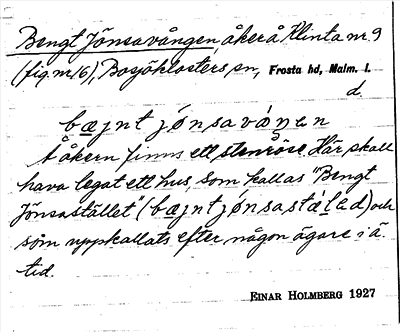 Bengt Jönsavången, åker å Klinta nr 9
(fig. nr 16), Bosjöklosters sn, Frosta hd, Malm. l.
d.
bæjnt jónsavåŋɛn
I åkern finns ett stenröse. Här skall
hava legat ett hus, som kallas "Bengt
Jönsastället" (bæjnt jónsastálɛd) och
som uppkallats efter någon ägare i ä.
tid.
EINAR HOLMBERG 1927